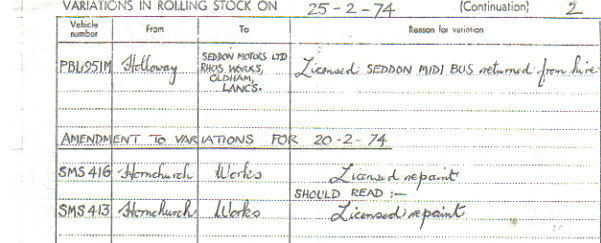 VARIATIONS IN ROLLING STOCK ON 25-2-74 (Continuation) 2
Vehicle number From To Reason for variation
PBU951M Holloway SEDDON MOTORS LTD RHOS WORKS, OLDHAM, LANCS. Licensed SEDDON MIDI BUS returned from hire
AMENDMENT TO VARIATIONS FOR 20-2-74
SMS 416 Hornchurch Works Licensed repaint
SHOULD READ :-
SMS 413 Hornchurch Works Licensed repaint